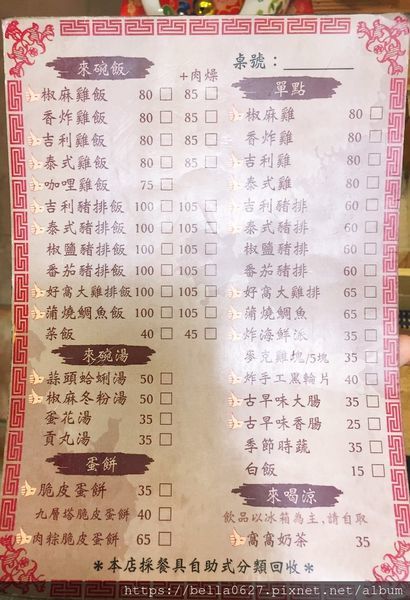 桌號：
來碗飯
+肉燥
椒麻雞飯 80 □ 85 □
香炸雞飯 80 □ 85 □
吉利雞飯 80 □ 85 □
泰式雞飯 80 □ 85 □
咖哩雞飯 75 □
吉利豬排飯 100 □ 105 □
泰式豬排飯 100 □ 105 □
椒鹽豬排飯 100 □ 105 □
番茄豬排飯 100 □ 105 □
好窩大雞排飯 100 □ 105 □
蒲燒鯛魚飯 100 □ 105 □
菜飯 40 □ 45 □
來碗湯
蒜頭蛤蜊湯 50 □
椒麻冬粉湯 50 □
蛋花湯 35 □
貢丸湯 35 □
蛋餅
脆皮蛋餅 35 □
九層塔脆皮蛋餅 40 □
肉粽脆皮蛋餅 65 □
單點
椒麻雞 80 □
香炸雞 80 □
吉利雞 80 □
泰式雞 80 □
吉利豬排 60 □
泰式豬排 60 □
椒鹽豬排 60 □
番茄豬排 60 □
好窩大雞排 65 □
蒲燒鯛魚 65 □
炸海鮮派 35 □
麥克雞塊/5塊 35 □
炸手工黑輪片 40 □
古早味大腸 35 □
古早味香腸 25 □
季節時蔬 35 □
白飯 15 □
來喝涼
飲品以冰箱為主,請自取
窩窩奶茶 35 □
＊本店採餐具自助式分類回收＊
https://bella0627.pixnet.net/album